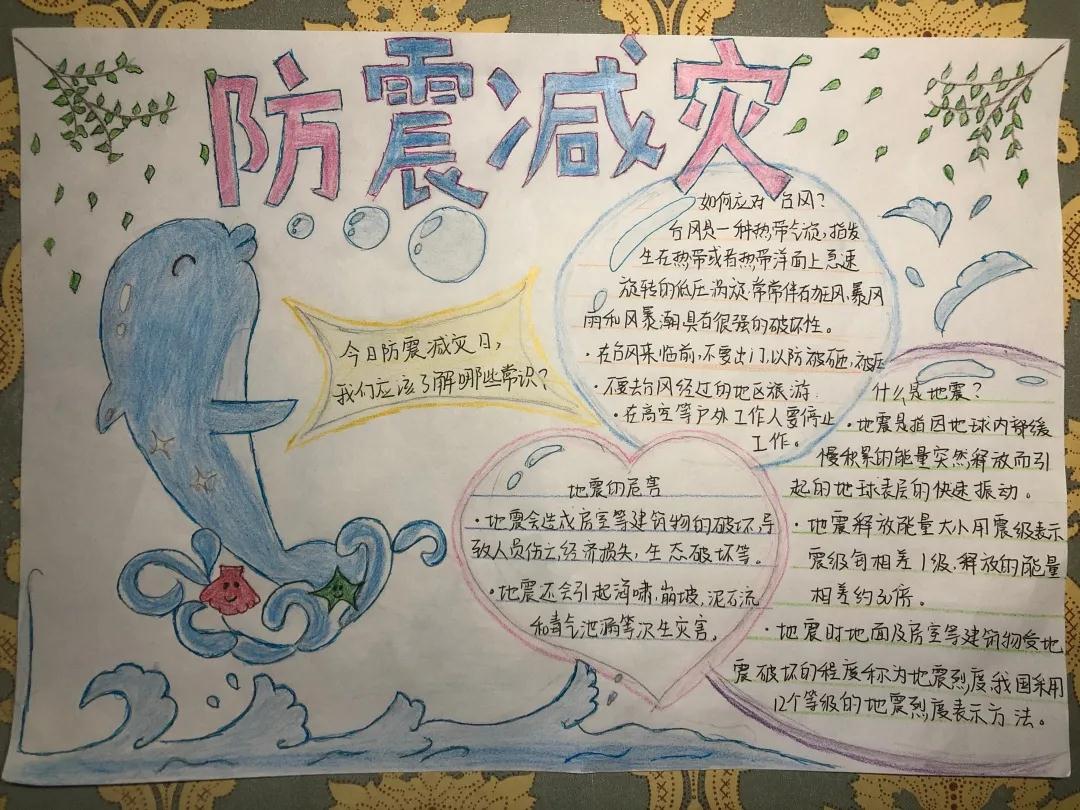 防震减灾
今日防震减灾日,
我们应该了解哪些常识?
如何应对台风?
台风是一种热带气旋,指发
生在热带或者热带洋面上急速
旋转的低压涡旋,常常伴有狂风、暴风
雨和风暴潮,具有很强的破坏性。
·在台风来临前,不要出门,以防被砸,被压
·不要去台风经过的地区旅游.
·在高空等户外工作人要停止
工作。
地震的危害
·地震会造成房室等建筑物的破坏,导
致人员伤亡经济损失,生态破坏等。
·地震还会引起海啸.崩坡,泥石流
和毒气池漏等次生灾害。
什么是地震?
·地震是指因地球内部缓
慢积累的能量突然释放而引
起的地球表层的快速振动。
·地震释放能量大小用震级表示
震级每相差1级.释放的能量
相差约30倍。
·地震时地面及房室等建筑物受地
震破坏的程度称为地震烈度,我国采用
12个等级的地震烈度表示方法。